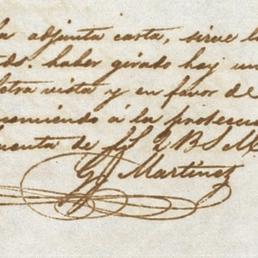 la adjunta carta, sirve la
haber girado hoy un
letra vista y en favor de
comiendo á la protecció
uenta de Q B S M
G Martinez